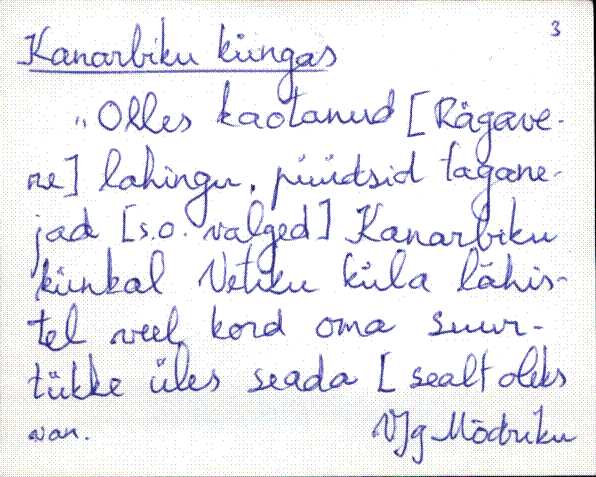 3
Kanarbiku küngas
"Olles kaotanud [Rägave-
re] lahingu, püüdsid tagane-
jad [s.o. valged] Kanarbiku
künkal Vetiku küla lähis-
tel veel kord oma suur-
tükke üles seada [sealt oleks
van. VJg Mõdriku